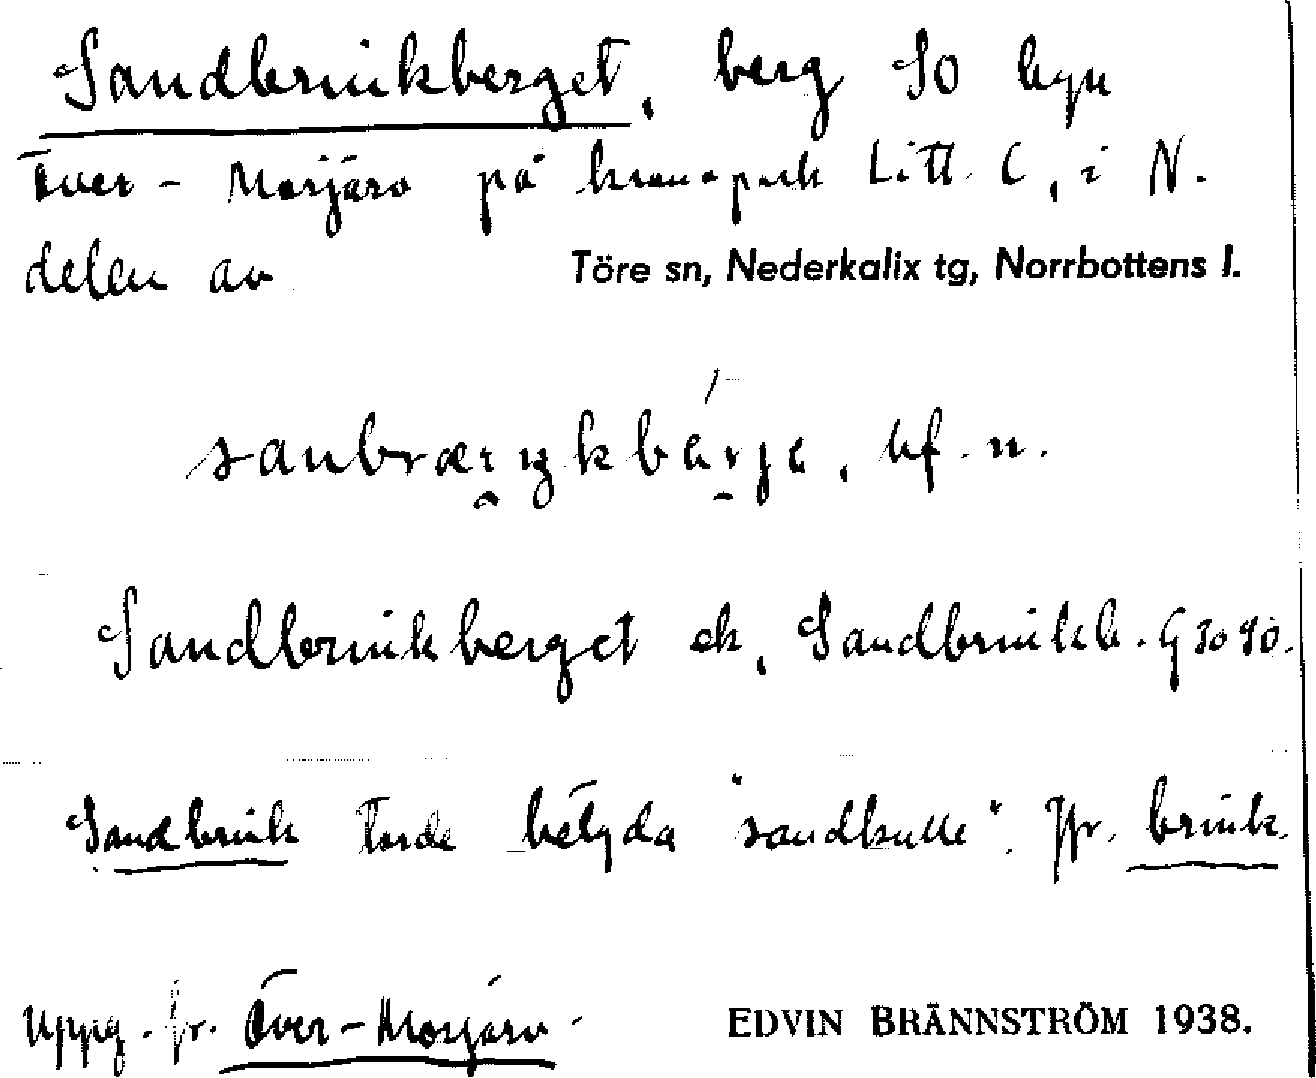 Sandbrinkberget, berg SO byn
Över-Morjärv på kronopark Litt. C, i N.
delen av Töre sn, Nederkalix tg, Norrbottens l.
bf. n.
Sandbrinkberget ek, Sandbrinkb. G 3040.
Sandbrink torde betyda "sandkulle". Jfr. brink.
Uppg. fr. Över-Morjärv.
EDVIN BRÄNNSTRÖM 1938.